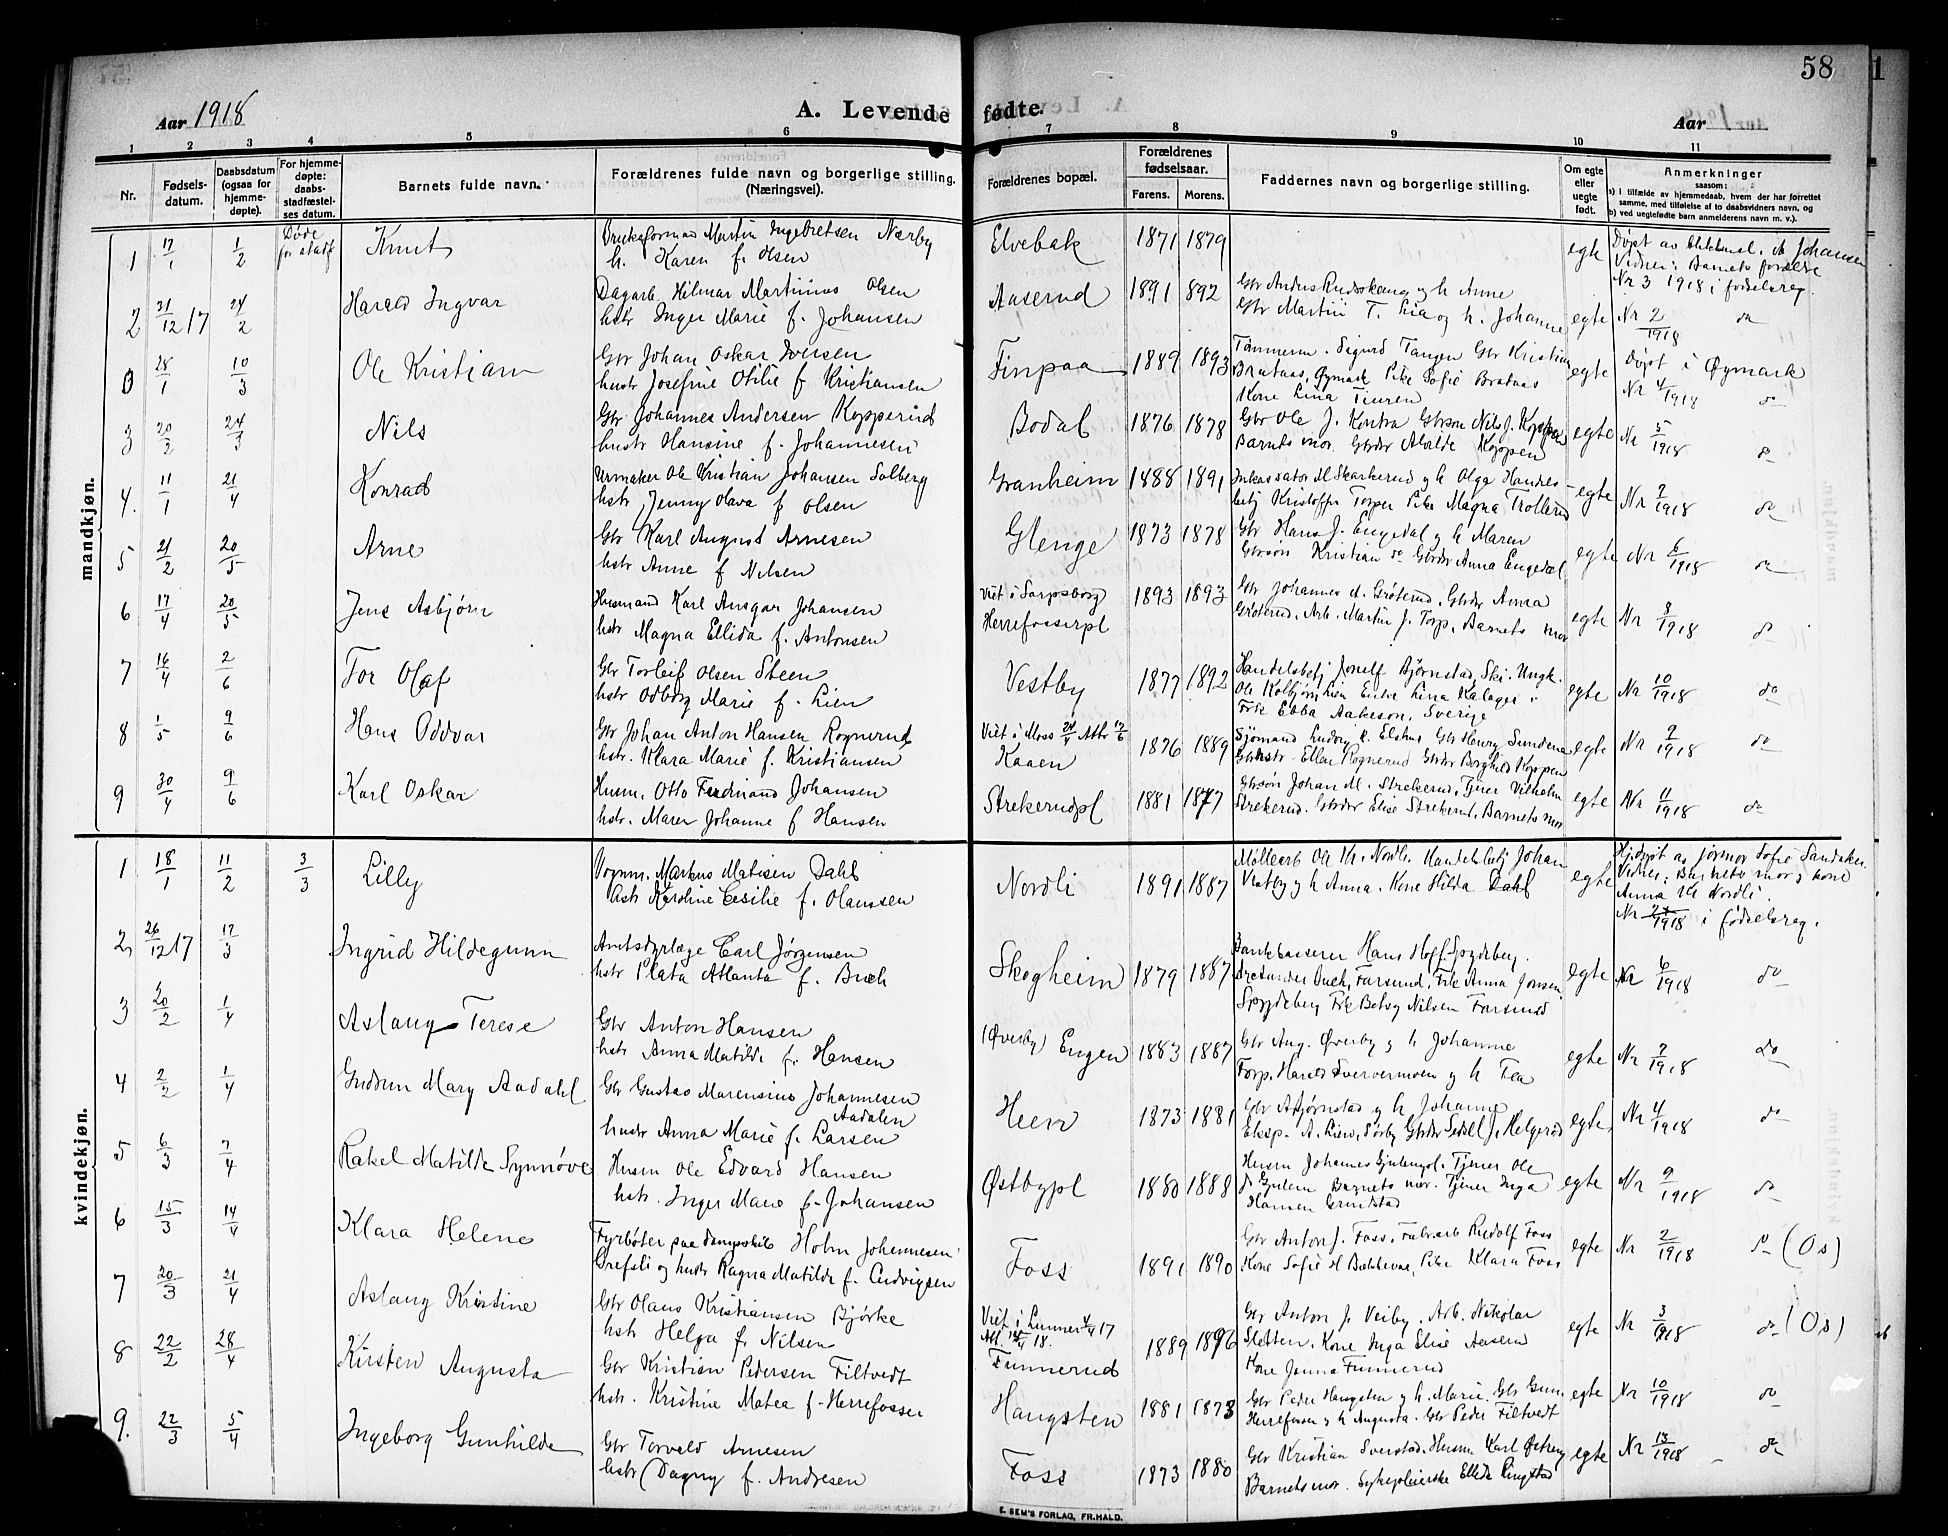 58
Aar 1918
A. Levende fødte.
Aar
1 2 3 4 5 6 7 8 9 10 11
Nr.
Fødsels-datum.
Daabsdatum (ogsaa for hjemme-døpte).
For hjemme-døpte: daabs-stadfæstel-ses datum.
Barnets fulde navn.
Forældrenes fulde navn og borgerlige stilling. (Næringsvei).
Forældrenes bopæl.
Forældrenes fødselsaar.
Farens. Morens.
Faddernes navn og borgerlige stilling.
Om egte eller uegte født.
Anmerkninger
saasom:
a) i tilfælde av hjemmedaab, hvem der har forrettet samme, med tilføielse af to daabsvidners navn, og
b) ved uegtefødte barn anmelderens navn m. v.).
mandkjøn.
1 17/1 1/2 Døde før stadf Knut
Martin Ingebretsen Nærby
h. Karen f. Olsen
Elvebak 1871 1879 egte
Vidner: Barnets forældre
Nr 3 1918 i fødselsreg.
2 31/12 17 24/2 Harald Ingvar
Dagarb. Hilmar Martinius Olsen
hstr Inger Marie f. Johansen
Aaserud 1891 892
Gbr Martin T. Lia og h. Johanne
egte Nr 2/1918 do
3 28/1 10/3 Ole Kristian
Gbr Johan Oskar Iversen
hustr Josefine Otilie f Kristiansen
Finpaa 1889 1893
Tømmerm. Sigurd Tangen Gbr Kristian
Brataas, Øymark Pike Sofie Brataas
Kone Lina
egte Døpt i Øymark
Nr 4/1918 do
3 20/2 24/3 Nils
Gbr. Johannes Andersen Kopperud
hustr Hansine f. Johannesen
Bodal 1876 1878
Gbr Ole J. Kontra Gbrsøn Nils J. Koppen
Barnets mor. Gbrdr Alvilde Koppen
egte Nr 5/1918 do
4. 11/1 21/4 Konrad
Urmaker Ole Kristian Johansen Solberg
hstr. Jenny Olava f Olsen
Granheim 1888 1891
Inkassator M Skarkerud og h Olga Handels-
betj Kristoffer Torper Pike Magna Trollerud
egte Nr 7/1918 do
5 21/2 20/5 Arne
Gbr Karl August Arnesen
hstr Anne f Nilsen
Glenge 1873 1878
Gbr Hans J. Engedal og h Maren
Gbrsøn Kristian do Gbrdr Anna Engedal
egte Nr 6/1918 do
6 17/4 20/5 Jens Asbjørn
Husmand Karl Ansgar Johansen
hstr Magna Ellida f. Antonsen
Viet i Sarpsborg
Herrefosserpl
1893 1893
Gbr Johannes A. Grøterud, Gbrdr Anna
Grøterud, Arb. Martin J. Torp, Barnets mor
egte Nr 8/1918 do
7 16/4 2/6 Tor Olaf
Gbr Torleif Olsen Steen
hstr Odborg Marie f. Lien
Vestby 1877 1892
Handelsbetj Bjørnstad, Ski. Ungk.
Ole Kolbjørn Lien Enke Lina
Frk Ebba Aakeson, Sverige
egte Nr 10/1918 do
8 1/5 9/6 Hans Oddvar
Gbr Johan Anton Hansen Rognerud
hstr. Klara Marie f. Kristiansen
Viet i Moss
Kaaen
1876 1889
Gbrhstr. Ellen Rognerud Gbrdr Borghild Koppen
egte Nr 9/1918 do
9 30/4 9/6 Karl Oskar
Husm. Otto Ferdinand Johansen
hstr. Maren Johanne f Hansen
Strekerudpl 1881 1877
Gbrsøn Johan M. Strekerud, Tjener Vilhelm
Strekerud. Gbrdr Elise Strekerud, Barnets mor
egte Nr 11/1918 do
kvindekjøn.
1 18/1 11/2 3/3 Lilly
Vognm. Markus Matisen Dahl
hstr Karoline Cesilie f. Olaussen
Nordli 1891 1887
Møllearb Ole Kr. Nordli. Handelsbetj Johan
Vestby og h Anna. Kone Hilda Dahl
egte
Hj.døpt av jormor Sofie Sandaker.
Vidner: Barnets mor og kone
Anna Kr Nordli.
i fødselsreg.
2 26/12 17 17/3 Ingrid Hildegunn
Amtsdyrlæge Carl Jørgensen
hstr Plata Atlanta f. Buch
Skogheim 1879 1887
Bankkasserer Hans Hoff. Spydeberg.
Buch, Farsund, Frk Anna Jonsen.
Spydeberg Frk Betsy Nilsen Farsund
egte Nr 6/1918 do
3 20/2 1/4 Aslaug Terese
Gbr Anton Hansen
hstr Anna Matilde f. Hansen
(Øverby) Engen 1883 1887
Gbr Aug. Øverby og h Johanne
Torp, Harald og h Tea
egte Nr 7/1918 do
4 2/2 1/4 Gudrun Mary Aadahl
Gbr Gustav Marensius Johannesen
Aadalen
hustr Anna Marie f. Larsen
Heen 1873 1881
Gbr A Bjørnstad og h Johanne
Eksp. A. Lien, Sørby Gbrdr Sedsel J. Helgerød
egte Nr 4/1918 do
5 6/3 7/4 Rakel Matilde Synnøve
Husm Ole Edvard Hansen
hstr. Inger Marie f. Johansen
Østbypl 1880 1888
Husm Johannes Gjulempl. Tjener Ole
Barnets mor. Tjener Inga
Hansen Grindstad
egte Nr 9/1918 do
6 15/3 14/4 Klara Helene
Fyrbøter paa dampskib Holm Johannesen
Grefsli og hustr Ragna Matilde f. Ludvigsen
Foss 1891 1890
Gbr Anton J. Foss. Fabr.arb Rudolf Foss
Kone Sofie M Bækkevar, Pike Klara Foss
egte Nr 2/1918 do (Os)
7 20/3 21/4 Aslaug Kristine
Gbr Olaus Kristiansen Bjørke
hstr Helga f. Nilsen
Viet i Lunner 4/4 17
Finnerud
1889 1896
Gbr Anton J. Veiby. Arb. Nikolai
Sletten. Kone Inga Elise Aaserud
Kone Jenna Finnerud
egte Nr 3/1918 do (Os)
8 22/2 28/4 Kirsten Augusta
Gbr Kristian Pedersen Filtvedt
hstr. Kristine Matea f. Herrefosser
Haugsten 1881 1873
Gbr Peder Haugsten og h. Marie. Gbr Gunn.
Herrefosser og h Augusta. Gbr Peder Filtvedt
egte Nr 10/1918 do
9. 22/3 5/4 Ingeborg Gunhilde
Gbr Torvald Arnesen
hstr Dagny f. Andresen
Foss 1873 1880
Gbr Kristian Sverstad. Husm Karl Østeng
Barnets mor. Sykepleierske Ellida Ringstad
egte Nr 13/1918 do
E. SEM'S FORLAG, FR.HALD.